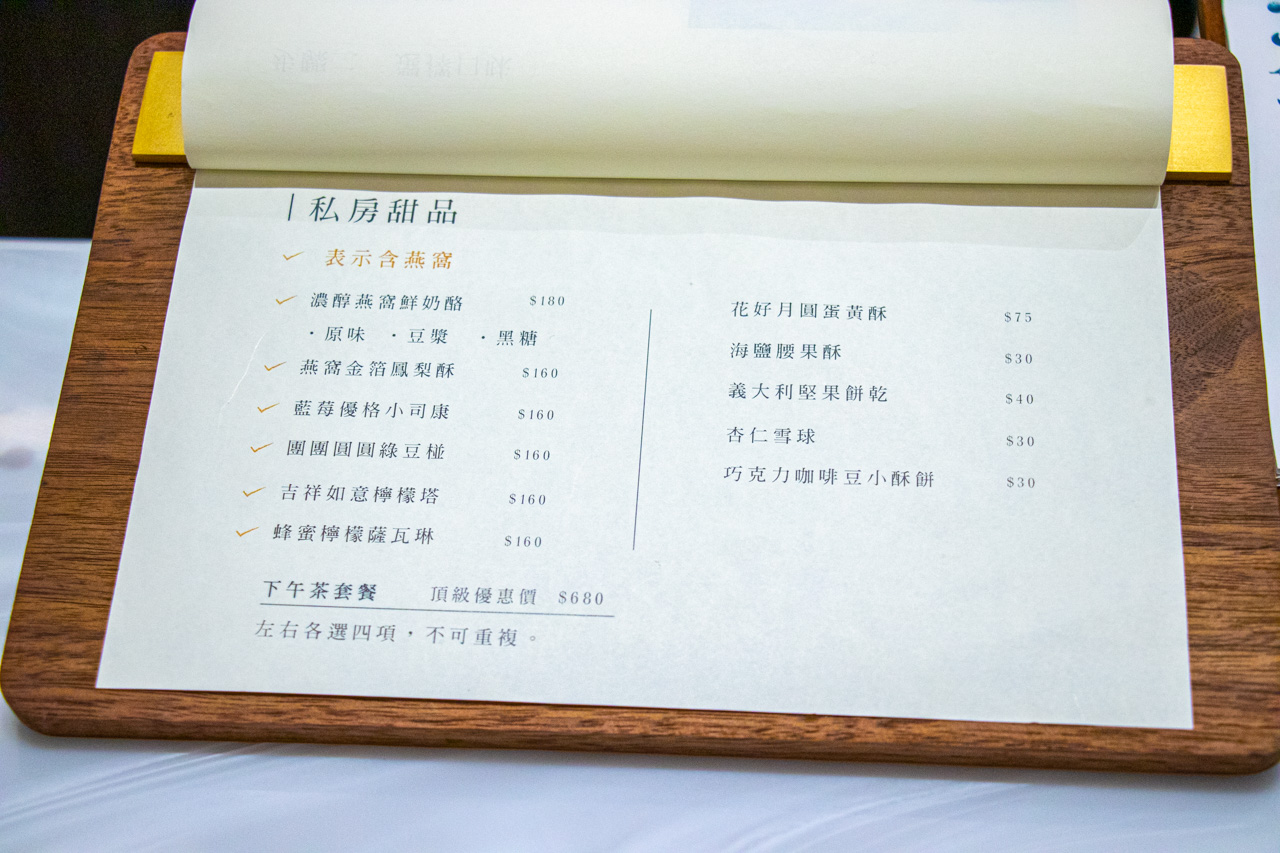 私房甜品
表示含燕窩
濃醇燕窩鮮奶酪 $180
・原味 ・豆漿 ・黑糖
燕窩金箔鳳梨酥 $160
藍莓優格小司康 $160
團團圓圓綠豆椪 $160
吉祥如意檸檬塔 $160
蜂蜜檸檬薩瓦琳 $160
花好月圓蛋黃酥 $75
海鹽腰果酥 $30
義大利堅果餅乾 $40
杏仁雪球 $30
巧克力咖啡豆小酥餅 $30
下午茶套餐 頂級優惠價 $680
左右各選四項，不可重複。